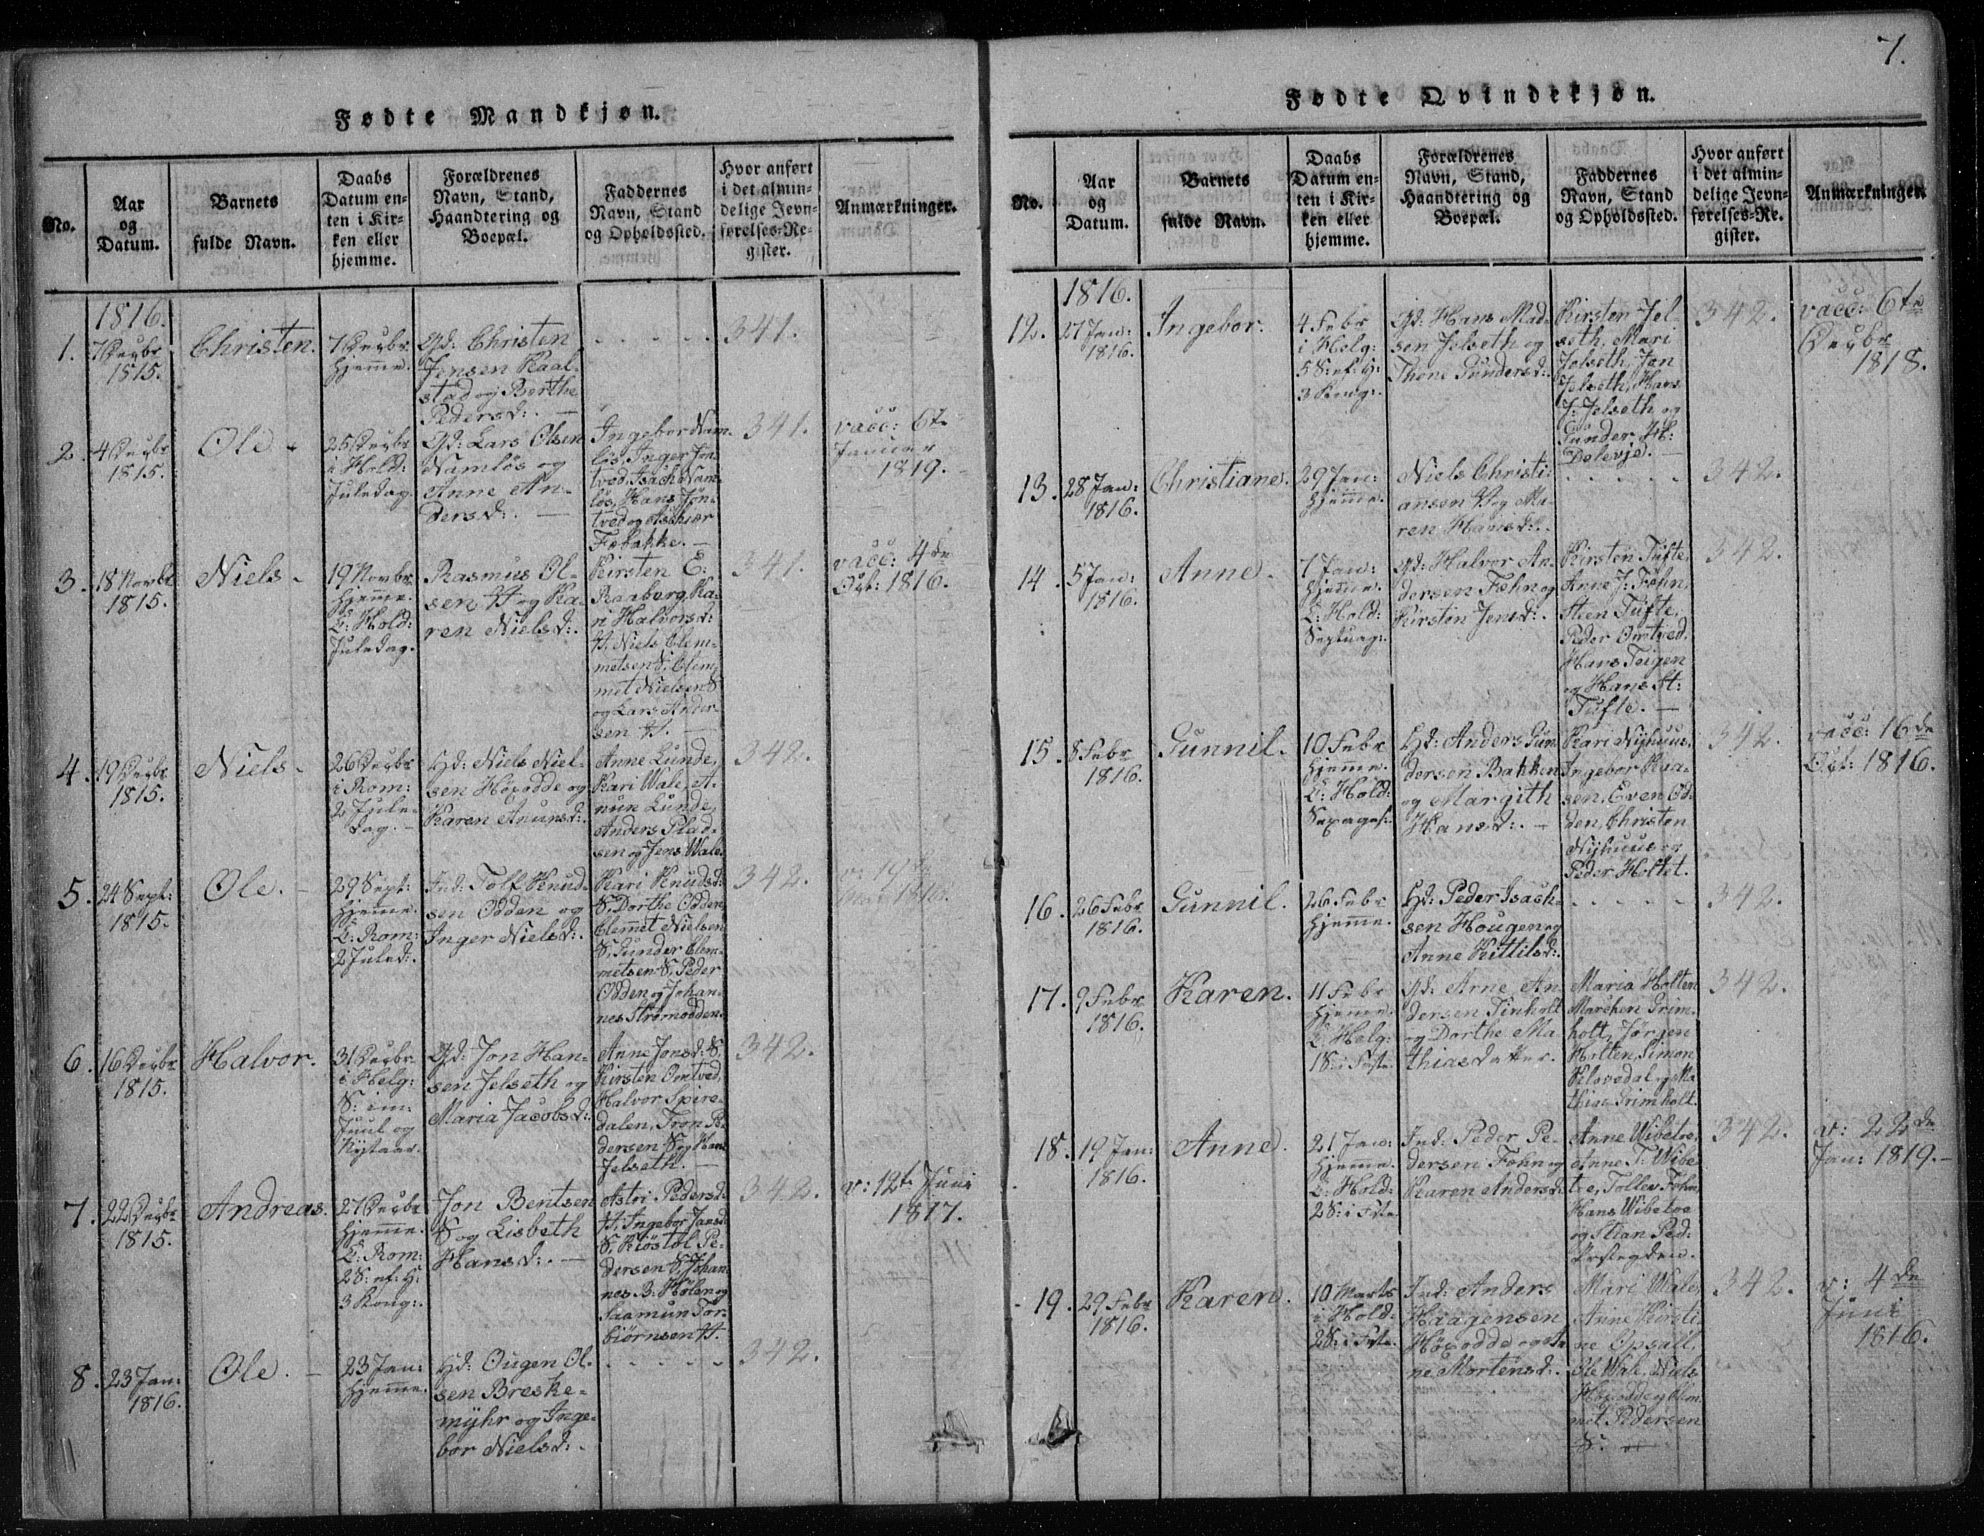 7.
Fødte Mandkjøn.
No.
Aar
og
Datum.
Barnets
fulde Navn.
Daabs
Datum en-
ten i Kir-
ken eller
hjemme.
Forældrenes
Navn, Stand,
Haandtering og
Boepæl.
Faddernes
Navn, Stand
og Opholdssted.
Hvor anført
i det almin-
delige Jevn-
førelses-Re-
gister.
Anmærkninger.
1816.
1.
7 Decbr
1815.
Christen.
7 Decbr
hjemme.
Gd: Christen
Jensen Kaal-
stad og Berthe
Pedersd:. —
341.
2.
4 Decbr
1815.
Ole -
25 Decbr
i Hold:
Juledag.
Gd: Lars Olsen
Namløs og
Anne An-
dersd:. —
Ingebor Nam-
løs, Inger Jøn-
tved, Isach Nam-
løs, Hans Jøn-
tved og Aslchier
Febakke. —
341.
vacc: 6te
Januar
1819.
3.
18 Novbr
1815.
Niels -
19 Novbr
hjemme.
C: Hold:
Juledag.
Rasmus Ol-
sen H og Ka-
ren Nielsd:.
Kirsten E:
Raaberg, Ka-
ri Halvorsd:
H, Niels Clem-
metsen S, Clem-
met Nielsen S
og Lars Ander-
sen H. —
341.
vacc: 4de
Oct: 1816.
4.
19 Decbr
1815.
Niels -
26 Decbr
i Rom:
2 Jule-
dag. —
Hd: Niels Niel-
sen Høxodde og
Karen Anunsd:.
Anne Lunde,
Kari Wale, A-
nun Lunde,
Anders Plad-
sen og Jens Wale.
342.
5.
24 Sept:
1815.
Ole. —
29 Sept:
hjemme.
C: Rom:
2 Juled:.
Ind: Tolf Knud-
sen Odden og
Inger Nielsd:.
Kari Knudsd:
S, Dorthe Odden,
Clemmet Nielsen
S, Gunder Clem-
metsen S, Peder
Odden og Johan-
nes Strømodden.
342.
6.
16 Decbr
1815.
Halvor.
31 Decbr
i Helg:
S: im:
Juul og
Nytaar.
Gd: Jon Han-
sen Jelseth og
Maria Jacobsd:.
Anne Jonsd: S,
Kirsten Omtved,
Halvor Spere-
dalen, Tron Pe-
dersen S og Hans
Jelseth. —
342.
7.
22 Decbr
1815.
Andreas.
27 Decbr
hjemme.
C: Rom:
2 S: ef: H:
3 Kong:.
Jon Bentsen
S og Lisbeth
Hansd:. —
Astri Pedersd:
H, Ingebor Jansd:
S, Kiøstøl Pe-
dersen S, Johan-
nes B. Holen og
Saamun Tor-
biørnsen H.
342.
v: 12te Juni
1817.
8.
23 Jan:
1816.
Ole. —
23 Jan:
hjemme.
Hd: Ougen Ol-
sen Breske-
myhr og Inge-
bor Nielsd:.
342.
Fødte Qvindekjøn.
No.
Aar
og
Datum.
Barnets
fulde Navn.
Daabs
Datum en-
ten i Kir-
ken eller
hjemme.
Forældrenes
Navn, Stand,
Haandtering og
Boepæl.
Faddernes
Navn, Stand
og Opholdssted.
Hvor anført
i det almin-
delige Jevn-
førelses-Re-
gister.
Anmærkninger.
1816.
12.
27 Jan:
1816.
Ingebor.
4 Febr
i Helg:
5 S: ef: H:
3 Kong:.
Gd: Hans Mad-
sen Jelseth og
Thone Gundersd:.
Kirsten Jel-
seth, Mari
Jelseth, Jan
Jelseth, Hans
J: Jelseth og
Gunder H:
Dolevje. —
342.
vacc: 6te
Decbr
1818.
13.
28 Jan:
1816.
Christiane.
29 Jan:
hjemme.
Niels Christi-
ansen H og Ma-
ren Hansd:.
342.
14.
5 Jan:
1816.
Anne.
7 Jan:
hjemme.
C: Hold:
Septuag:.
Gd: Halvor An-
dersen Fehn og
Kirsten Jensd:.
Kirsten Tufte,
Anne J: Fehn,
Sten Tufte,
Peder Omtved,
Hans Teigen
og Hans H:
Tufte. —
342.
15.
8 Febr
1816.
Gunnil.
10 Febr
hjemme.
C: Hold:
Sexages:.
Hd: Anders Gun-
dersen Bakken
og Margith
Hansd:. —
Kari Nyhuus,
Ingebor Kaa-
sen, Even Od-
den, Christen
Nyhuus og
Peder Holtet.
342.
vacc: 16de
Oct: 1816.
16.
26 Febr
1816.
Gunnil.
26 Febr
hjemme.
Hd: Peder Isach-
sen Hougen og
Anne Kittilsd:.
342.
17.
9 Febr
1816.
Karen.
11 Febr
hjemme.
C: Helg:
1 S: i Faste.
Gd: Arne An-
dersen Tinholt
og Dorthe Ma-
thiasdatter.
Maria Holten,
Marthen Grim-
holt, Jørgen
Holten, Simon
Klovedal og Ma-
thias Grimholt.
342.
18.
19 Jan:
1816.
Anne.
21 Jan:
hjemme.
C: Hold:
2 S: i Faste.
Ind: Peder Pe-
dersen Fehn og
Karen Andersd:.
Anne Wibetoe,
Anne T: Wibe-
toe, Tollev Fehn,
Hans Wibetoe
og Stian Ped:
342.
v: 22de
Jan: 1819. —
19.
29 Febr
1816.
Karen.
10 Marts
i Hold:
2 S: i Faste.
Ind: Anders
Haagensen
Høxodde og An-
ne Mortensd:.
Mari Wale,
Anne Kirsti-
ne Opsall,
Ole Wale, Niels
Høxodde og Clem-
met Pedersen
S.
342.
v: 4de
Juni
1816.